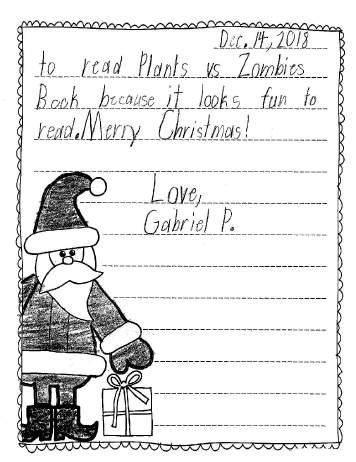 Dec. 14, 2018
to read Plants vs Zombies
Book because it looks fun to
read. Merry Christmas!
Love,
Gabriel P.